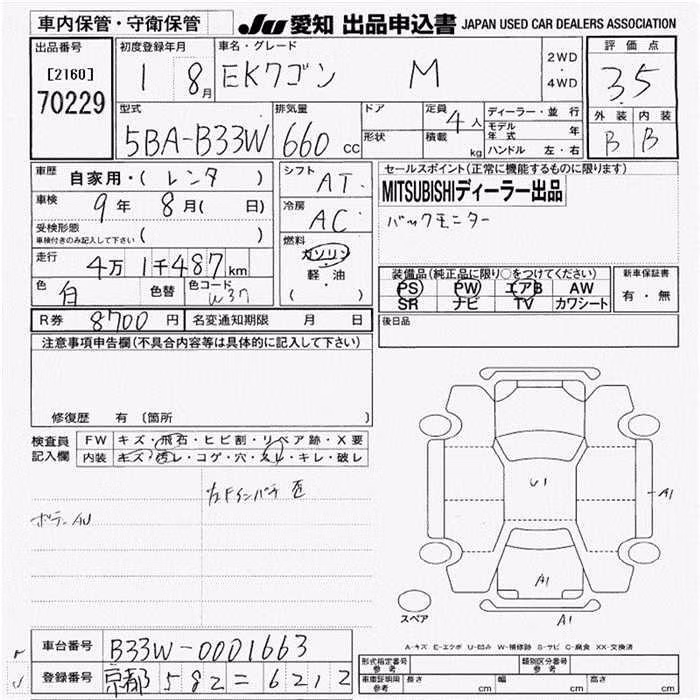 車内保管・守衛保管
JU 愛知 出品申込書 JAPAN USED CAR DEALERS ASSOCIATION
出品番号
[2160]
70229
初度登録年月
1 8月
車名・グレード
EKワゴン M
2WD
・
4WD
評価点
3.5
外装 内装
B B
型式
5BA-B33W
排気量
660 cc
ドア
形状
定員 4人
積載 kg
ディーラー・並行
モデル年式 年
ハンドル 左・右
車歴 自家用・( レンタ )
車検 9年 8月( 日)
受検形態
車検付きのみ記入して下さい ( )
走行 4万1千487km
色 白 色替 色コード W37
シフト AT
冷房 AC
燃料
ガソリン
軽・油
( )
セールスポイント(正常に機能するものに限ります)
MITSUBISHIディーラー出品
バックモニター
装備品(純正品に限り○をつけてください)
PS PW エアB AW
SR ナビ TV カワシート
新車保証書
有・無
R券 8700 円 名変通知期限 月 日
後日品
注意事項申告欄(不具合内容等は具体的に記入して下さい)
修復歴 有 (箇所 )
検査員記入欄
FW キズ・飛石・ヒビ割・リペア跡・X要
内装 キズ・汚レ・コゲ・穴・スレ・キレ・破レ
左Fインパネ
ボデー AU
U1
A1
A1
A1
スペア
A-キズ E-エクボ U-凹み W-補修跡 S-サビ C-腐食 XX-交換済
車台番号 B33W-0001663
登録番号 京都 582 = 6212
形式指定番号 参考
類別区分番号 参考
車庫証明期限 参考 長さ cm 幅 cm 高さ cm